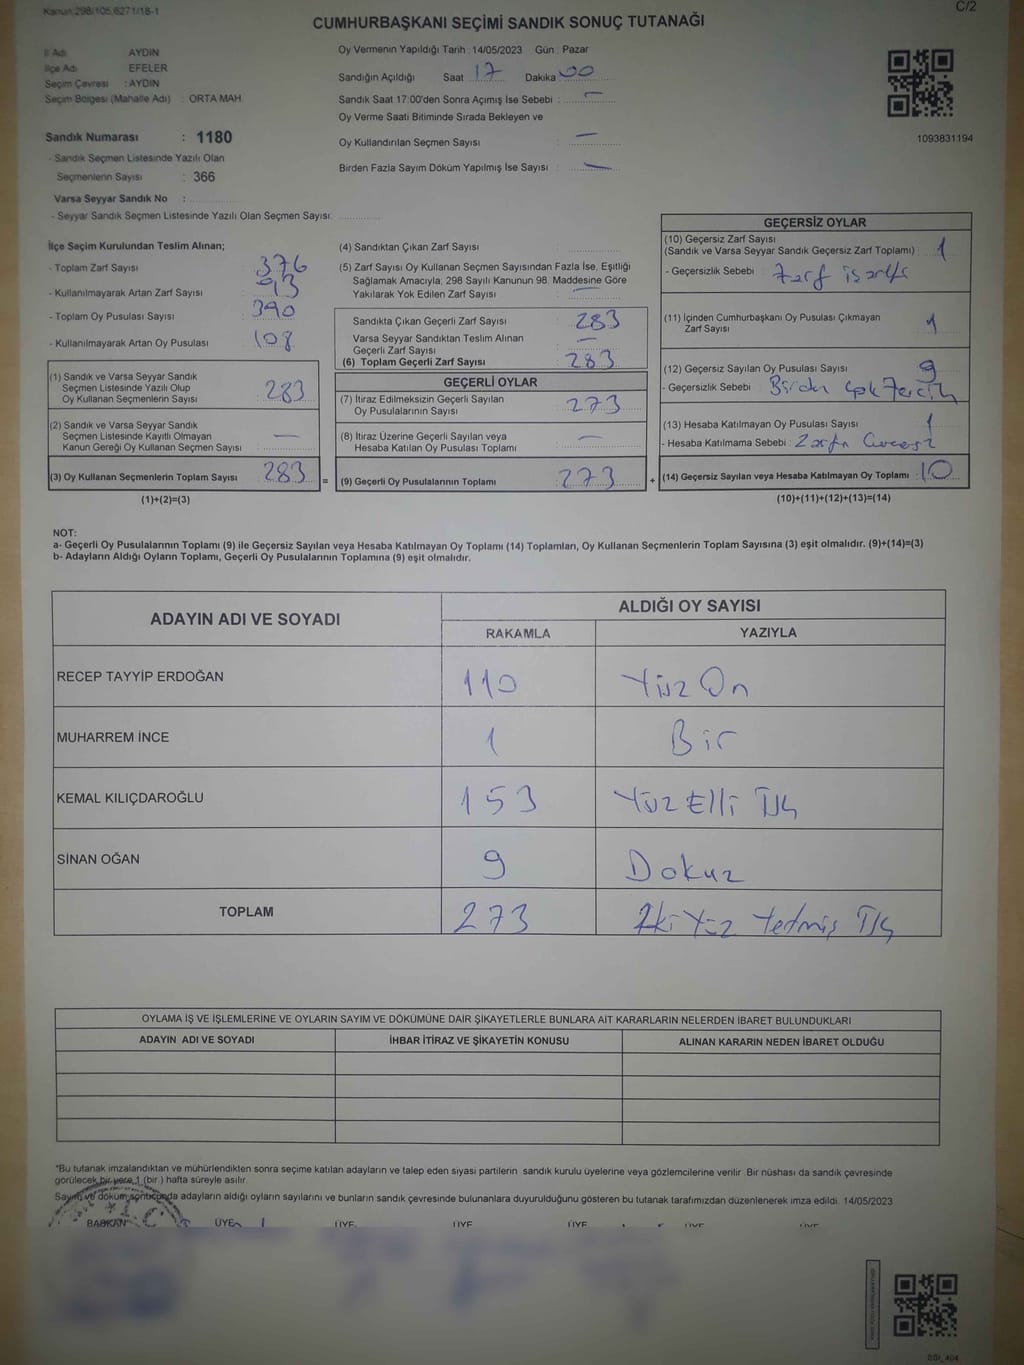 Kanun 298/105,6271/18-1
C/2
CUMHURBAŞKANI SEÇİMİ SANDIK SONUÇ TUTANAĞI
İl Adı AYDIN
İlçe Adı EFELER
Seçim Çevresi : AYDIN
Seçim Bölgesi (Mahalle Adı) : ORTA MAH.
Oy Vermenin Yapıldığı Tarih : 14/05/2023 Gün : Pazar
Sandığın Açıldığı Saat 17 Dakika 00
Sandık Saat 17:00'den Sonra Açımış İse Sebebi : —
Oy Verme Saati Bitiminde Sırada Bekleyen ve
Oy Kullandırılan Seçmen Sayısı : —
Birden Fazla Sayım Döküm Yapılmış İse Sayısı : —
1093831194
Sandık Numarası : 1180
- Sandık Seçmen Listesinde Yazılı Olan
Seçmenlerin Sayısı : 366
Varsa Seyyar Sandık No :
- Seyyar Sandık Seçmen Listesinde Yazılı Olan Seçmen Sayısı:
İlçe Seçim Kurulundan Teslim Alınan;
- Toplam Zarf Sayısı : 376
- Kullanılmayarak Artan Zarf Sayısı : 93
- Toplam Oy Pusulası Sayısı : 390
- Kullanılmayarak Artan Oy Pusulası : 108
(1) Sandık ve Varsa Seyyar Sandık
Seçmen Listesinde Yazılı Olup
Oy Kullanan Seçmenlerin Sayısı : 283
(2) Sandık ve Varsa Seyyar Sandık
Seçmen Listesinde Kayıtlı Olmayan
Kanun Gereği Oy Kullanan Seçmen Sayısı : —
(3) Oy Kullanan Seçmenlerin Toplam Sayısı : 283 =
(1)+(2)=(3)
(4) Sandıktan Çıkan Zarf Sayısı :
(5) Zarf Sayısı Oy Kullanan Seçmen Sayısından Fazla İse, Eşitliği
Sağlamak Amacıyla; 298 Sayılı Kanunun 98. Maddesine Göre
Yakılarak Yok Edilen Zarf Sayısı : —
Sandıkta Çıkan Geçerli Zarf Sayısı : 283
Varsa Seyyar Sandıktan Teslim Alınan
Geçerli Zarf Sayısı : —
(6) Toplam Geçerli Zarf Sayısı : 283
GEÇERLİ OYLAR
(7) İtiraz Edilmeksizin Geçerli Sayılan
Oy Pusulalarının Sayısı : 273
(8) İtiraz Üzerine Geçerli Sayılan veya
Hesaba Katılan Oy Pusulası Toplamı : —
(9) Geçerli Oy Pusulalarının Toplamı : 273 +
GEÇERSİZ OYLAR
(10) Geçersiz Zarf Sayısı
(Sandık ve Varsa Seyyar Sandık Geçersiz Zarf Toplamı) : 1
- Geçersizlik Sebebi :
(11) İçinden Cumhurbaşkanı Oy Pusulası Çıkmayan
Zarf Sayısı : 1
(12) Geçersiz Sayılan Oy Pusulası Sayısı : 9
- Geçersizlik Sebebi : Birden çok Tercih
(13) Hesaba Katılmayan Oy Pusulası Sayısı : 1
- Hesaba Katılmama Sebebi :
(14) Geçersiz Sayılan veya Hesaba Katılmayan Oy Toplamı : 10
(10)+(11)+(12)+(13)=(14)
NOT:
a- Geçerli Oy Pusulalarının Toplamı (9) ile Geçersiz Sayılan veya Hesaba Katılmayan Oy Toplamı (14) Toplamları, Oy Kullanan Seçmenlerin Toplam Sayısına (3) eşit olmalıdır. (9)+(14)=(3)
b- Adayların Aldığı Oyların Toplamı, Geçerli Oy Pusulalarının Toplamına (9) eşit olmalıdır.
ADAYIN ADI VE SOYADI ALDIĞI OY SAYISI
RAKAMLA YAZIYLA
RECEP TAYYİP ERDOĞAN 110 Yüz On
MUHARREM İNCE 1 Bir
KEMAL KILIÇDAROĞLU 153 Yüz Elli Üç
SİNAN OĞAN 9 Dokuz
TOPLAM 273 İki Yüz Yetmiş Üç
OYLAMA İŞ VE İŞLEMLERİNE VE OYLARIN SAYIM VE DÖKÜMÜNE DAİR ŞİKAYETLERLE BUNLARA AİT KARARLARIN NELERDEN İBARET BULUNDUKLARI
ADAYIN ADI VE SOYADI İHBAR İTİRAZ VE ŞİKAYETİN KONUSU ALINAN KARARIN NEDEN İBARET OLDUĞU
*Bu tutanak imzalandıktan ve mühürlendikten sonra seçime katılan adayların ve talep eden siyasi partilerin sandık kurulu üyelerine veya gözlemcilerine verilir. Bir nüshası da sandık çevresinde
görülecek bir yere 1 (bir ) hafta süreyle asılır.
Sayım ve döküm sonucunda adayların aldığı oyların sayılarını ve bunların sandık çevresinde bulunanlara duyurulduğunu gösteren bu tutanak tarafımızdan düzenlenerek imza edildi. 14/05/2023
BAŞKAN ÜYE ÜYE ÜYE ÜYE ÜYE ÜYE